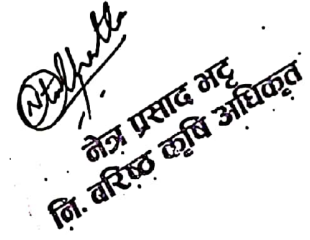 नेत्र प्रसाद भट्ट
नि. बरिष्ठ कृषि अधिकृत